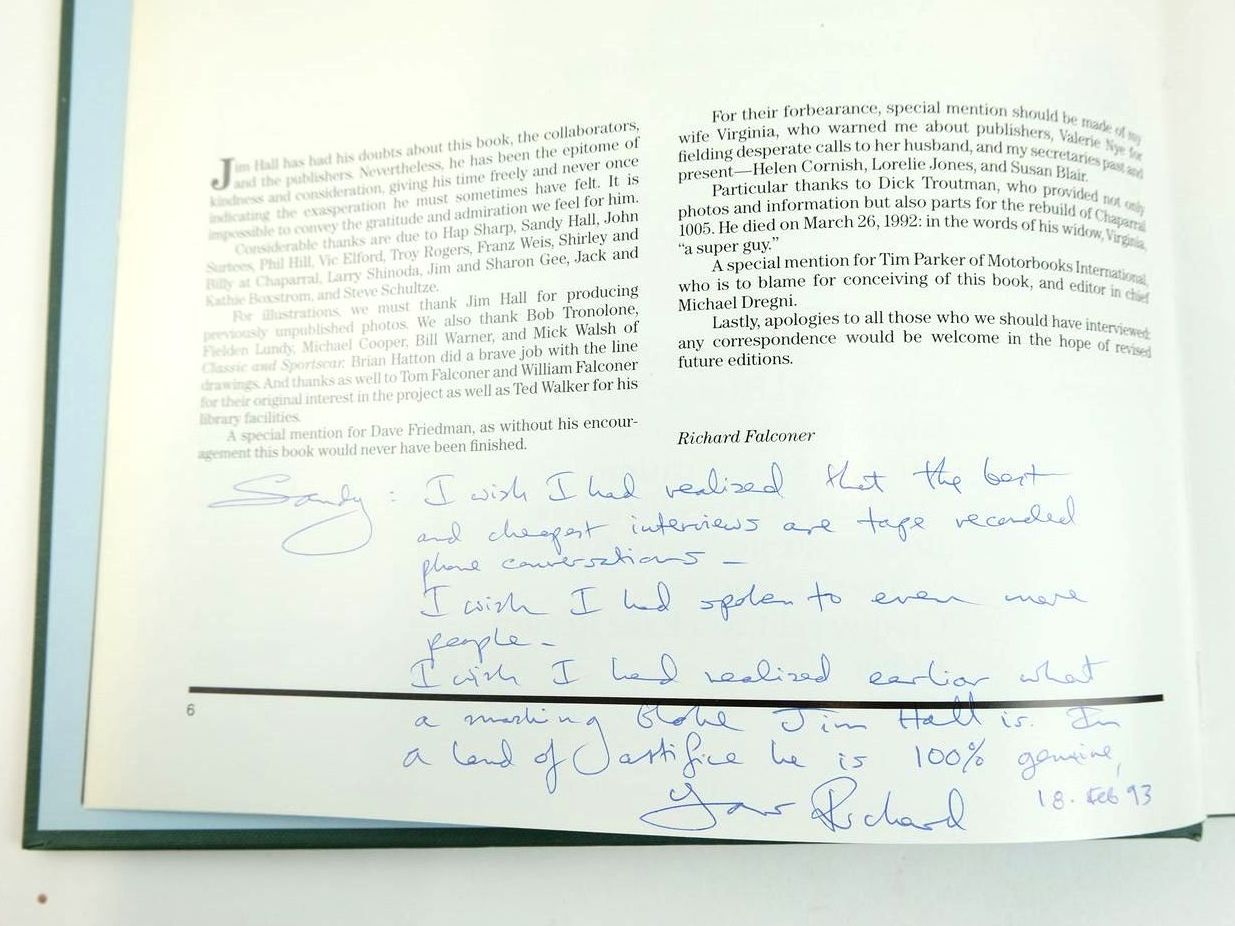 Jim Hall has had his doubts about this book, the collaborators,
and the publishers. Nevertheless, he has been the epitome of
kindness and consideration, giving his time freely and never once
indicating the exasperation he must sometimes have felt. It is
impossible to convey the gratitude and admiration we feel for him.
Considerable thanks are due to Hap Sharp, Sandy Hall, John
Surtees, Phil Hill, Vic Elford, Troy Rogers, Franz Weis, Shirley and
Billy at Chaparral, Larry Shinoda, Jim and Sharon Gee, Jack and
Kathie Boxstrom, and Steve Schultze.
For illustrations, we must thank Jim Hall for producing
previously unpublished photos. We also thank Bob Tronolone,
Fielden Lundy, Michael Cooper, Bill Warner, and Mick Walsh of
Classic and Sportscar. Brian Hatton did a brave job with the line
drawings. And thanks as well to Tom Falconer and William Falconer
for their original interest in the project as well as Ted Walker for his
library facilities.
A special mention for Dave Friedman, as without his encour-
agement this book would never have been finished.
For their forbearance, special mention should be made of my
wife Virginia, who warned me about publishers, Valerie Nye for
fielding desperate calls to her husband, and my secretaries past and
present—Helen Cornish, Lorelie Jones, and Susan Blair.
Particular thanks to Dick Troutman, who provided not only
photos and information but also parts for the rebuild of Chaparral
1005. He died on March 26, 1992: in the words of his widow, Virginia,
“a super guy.”
A special mention for Tim Parker of Motorbooks International,
who is to blame for conceiving of this book, and editor in chief
Michael Dregni.
Lastly, apologies to all those who we should have interviewed:
any correspondence would be welcome in the hope of revised
future editions.
Richard Falconer
Sandy : I wish I had realized that the best
and cheapest interviews are tape recorded
phone conversations –
I wish I had spoken to even more
people –
I wish I had realized earlier what
6
a bloke Jim Hall is. In
a land of artifice he is 100% genuine,
Richard 18. Feb 93